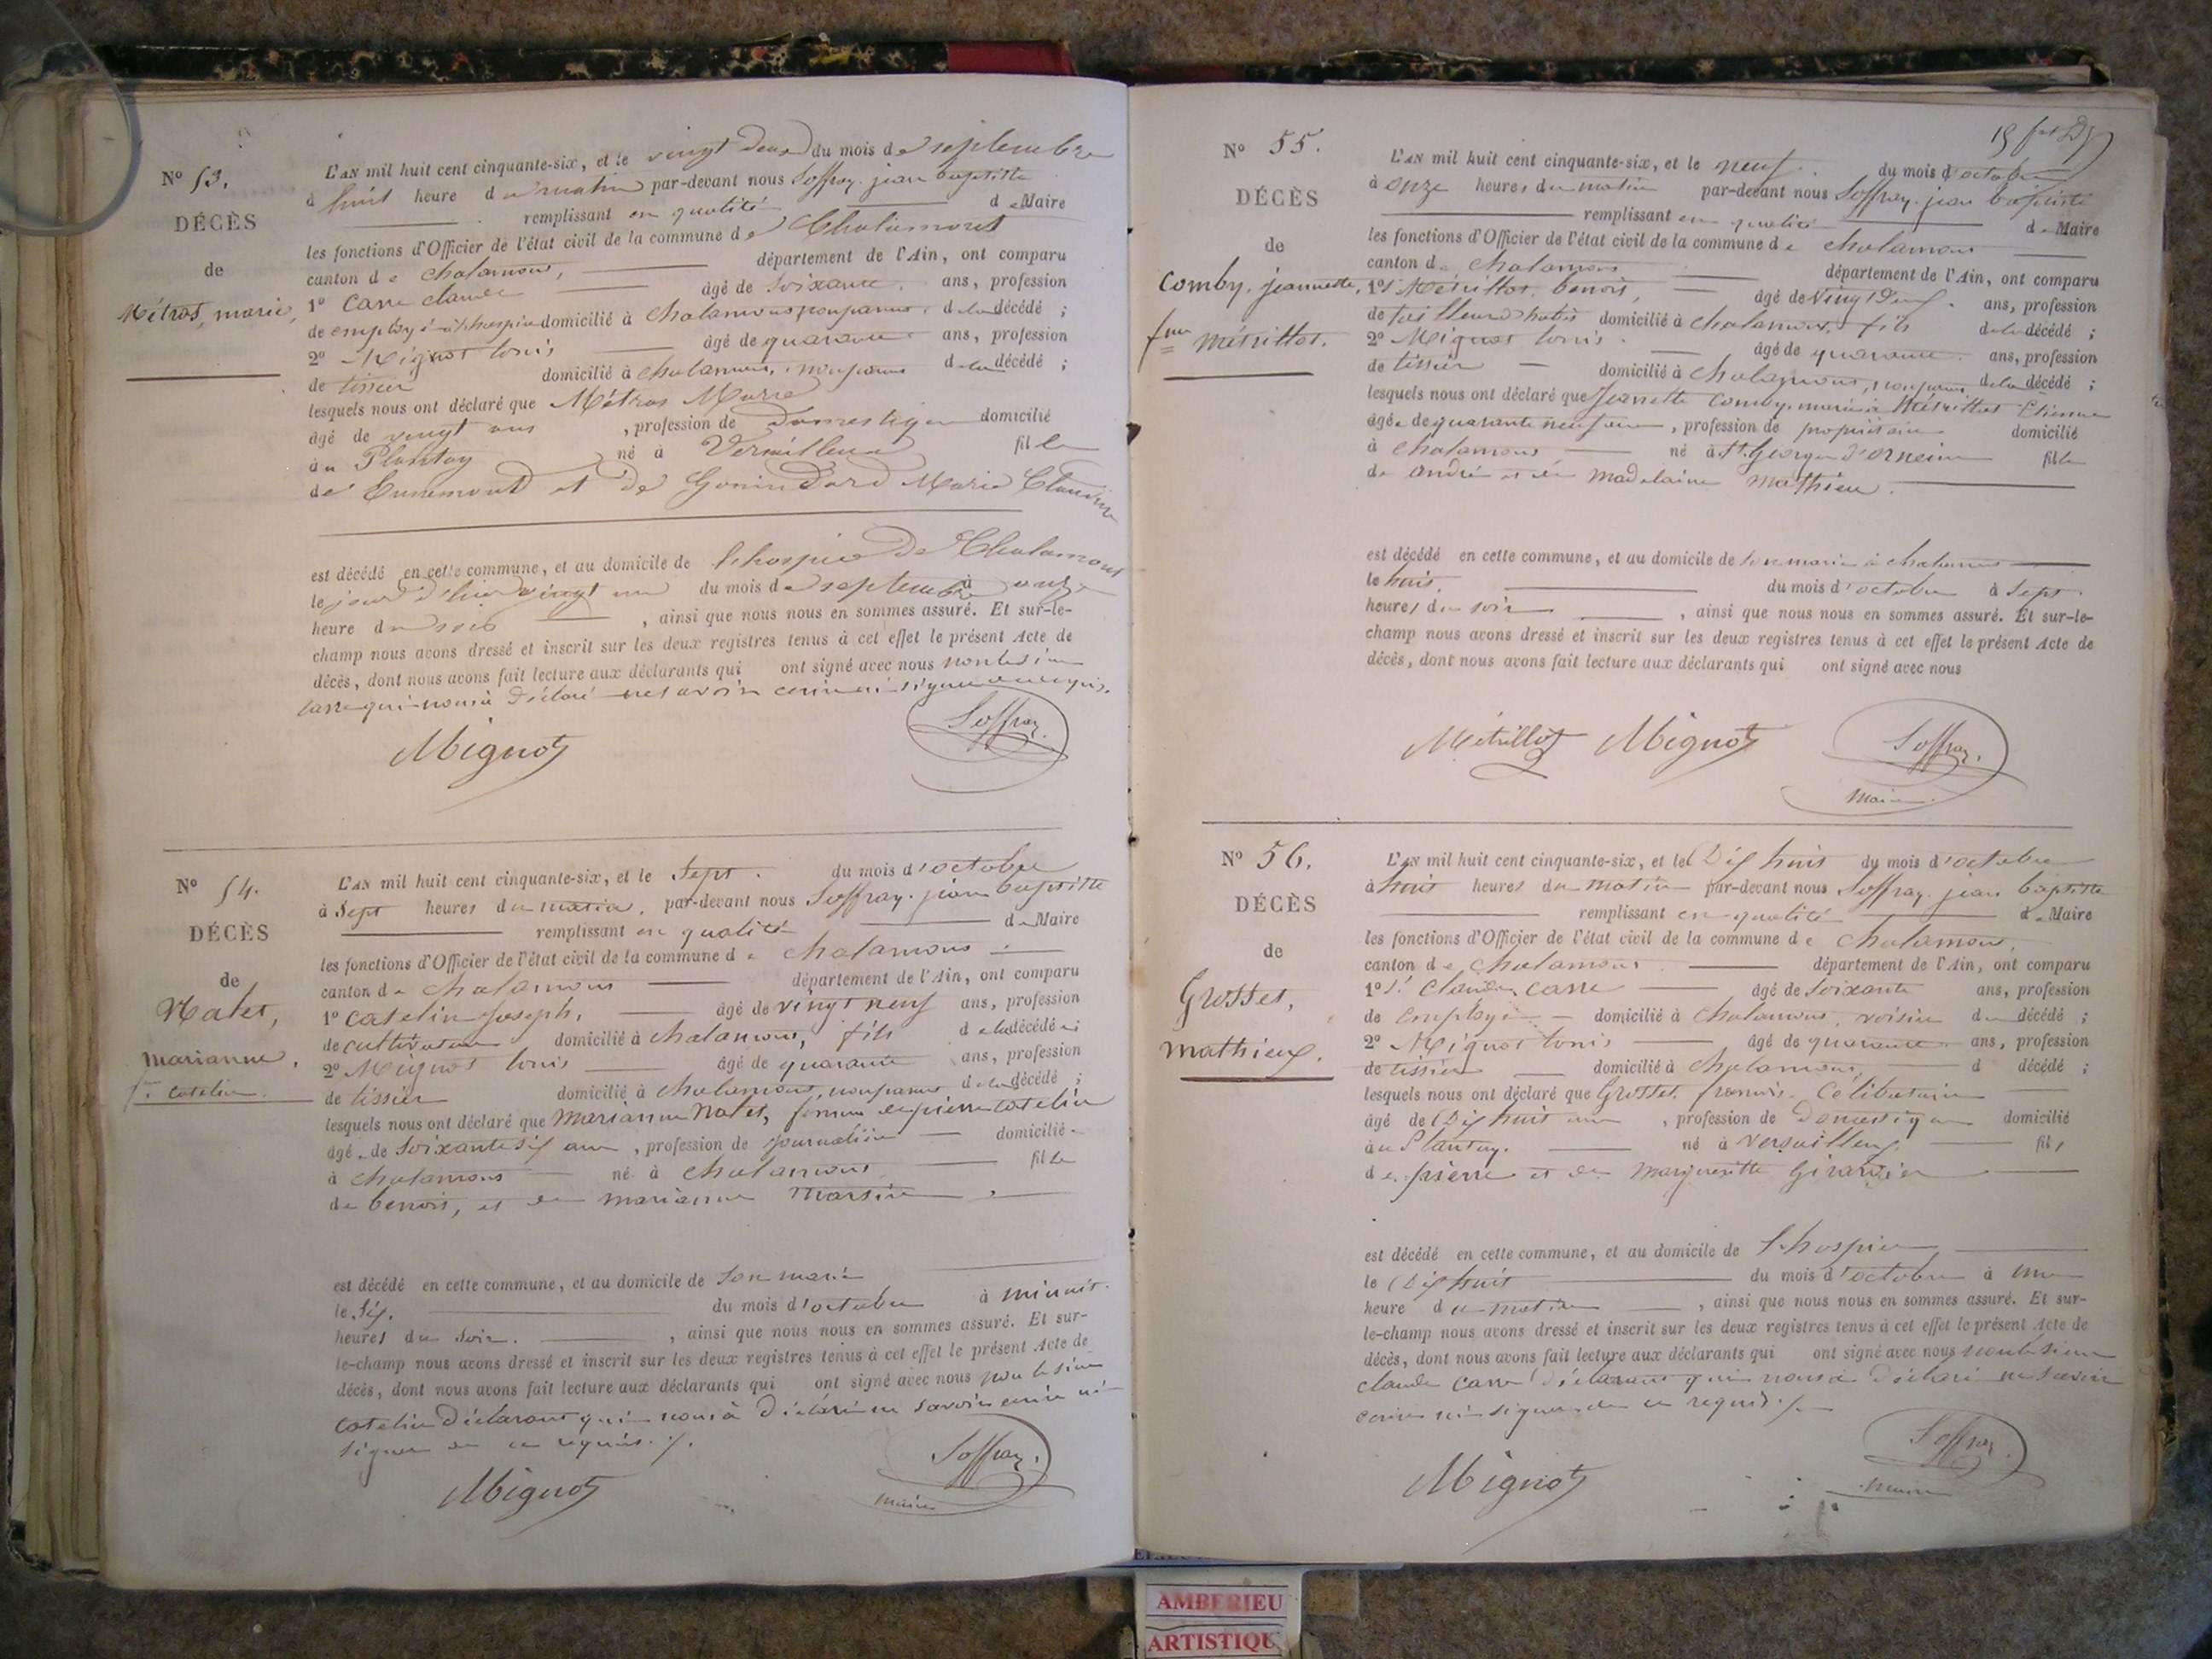 N° 53.
DÉCÈS
de
Métras, marie,
L'AN mil huit cent cinquante-six, et le vingt deux du mois de septembre
à huit heure du matin par-devant nous Soffray jean baptiste
remplissant en qualité de Maire
les fonctions d'Officier de l'état civil de la commune de Chalamont
canton de chalamont, département de l'Ain, ont comparu
1° Carre claude âgé de soixante ans, profession
de employé à l'hospice domicilié à chalamont, non parent de la décédé ;
2° Mignot louis âgé de quarante ans, profession
de tissier domicilié à chalamont, non parent de la décédé ;
lesquels nous ont déclaré que Métras Marie
âgé de vingt ans , profession de Domestique domicilié
au Plantay né à Versailleux fille
de et de Marie Claudine
est décédé en cette commune, et au domicile de l'hospice De Chalamont
le jour d'hier vingt un du mois de septembre à onze
heure du soir , ainsi que nous nous en sommes assuré. Et sur-le-
champ nous avons dressé et inscrit sur les deux registres tenus à cet effet le présent Acte de
décès, dont nous avons fait lecture aux déclarants qui ont signé avec nous non le sieur
carre qui nous à Déclaré ne savoir écrire ni signer de ce requis.
Mignot Soffray
N° 54.
DÉCÈS
de
Nalet,
marianne,
fe. catelin.
L'AN mil huit cent cinquante-six, et le Sept. du mois d'octobre
à Sept heures du matin, par-devant nous Soffray jean baptiste
remplissant en qualité de Maire
les fonctions d'Officier de l'état civil de la commune de chalamont
canton de chalamont département de l'Ain, ont comparu
1° Catelin Joseph, âgé de vingt neuf ans, profession
de cultivateur domicilié à chalamont, fils de la décédé ;
2° Mignot louis âgé de quarante ans, profession
de tissier domicilié à chalamont, non parent de la décédé ;
lesquels nous ont déclaré que marianne Nalet, femme de pierre catelin
âgée de Soixante six ans , profession de journalière domiciliée
à chalamont né à chalamont fille
de benoit, et de marianne
est décédé en cette commune, et au domicile de Son mari
le Six. du mois d'octobre à minuit.
heures du Soir. , ainsi que nous nous en sommes assuré. Et sur-
le-champ nous avons dressé et inscrit sur les deux registres tenus à cet effet le présent Acte de
décès, dont nous avons fait lecture aux déclarants qui ont signé avec nous non le sieur
catelin Déclarant qui nous à Déclaré ne savoir écrire ni
signer de ce requis ./.
Mignot Soffray.
maire
19
N° 55.
DÉCÈS
de
Comby, jeannette,
fme métrillot.
L'AN mil huit cent cinquante-six, et le neuf. du mois d'octobre
à onze heures du matin par-devant nous Soffray jean baptiste
remplissant en qualité de Maire
les fonctions d'Officier de l'état civil de la commune de chalamont
canton de chalamont département de l'Ain, ont comparu
1° Métrillot benoit, âgé de vingt Deux ans, profession
de tailleur d'habits domicilié à chalamont, fils de la décédé ;
2° Mignot louis. âgé de quarante ans, profession
de tissier domicilié à chalamont, non parent de la décédé ;
lesquels nous ont déclaré que Jeannette Comby, mariée à Métrillot Etienne
âgée de quarante neuf ans , profession de propriétaire domicilié
à chalamont né à St. Georges fille
de andré et de madelaine mathieu.
est décédé en cette commune, et au domicile de son mari à chalamont
le huit. du mois d'octobre à Sept
heures du soir , ainsi que nous nous en sommes assuré. Et sur-le-
champ nous avons dressé et inscrit sur les deux registres tenus à cet effet le présent Acte de
décès, dont nous avons fait lecture aux déclarants qui ont signé avec nous
Métrillot Mignot Soffray.
maire.
N° 56.
DÉCÈS
de
Grosset,
mathieu.
L'AN mil huit cent cinquante-six, et le Dix huit du mois d'octobre
à huit heures du matin par-devant nous Soffray jean baptiste
remplissant en qualité de Maire
les fonctions d'Officier de l'état civil de la commune de chalamont,
canton de chalamont département de l'Ain, ont comparu
1° Sr. Claude Carre âgé de soixante ans, profession
de Employé domicilié à chalamont, voisin du décédé ;
2° Mignot louis âgé de quarante ans, profession
de tissier domicilié à chalamont, d décédé ;
lesquels nous ont déclaré que Grosset, Célibataire
âgé de Dix huit ans , profession de Domestique domicilié
au Plantay. né à Versailleux fils
de pierre et de Margueritte Girardier
est décédé en cette commune, et au domicile de l'hospice
le Dix huit du mois d'octobre à une
heure du matin , ainsi que nous nous en sommes assuré. Et sur-
le-champ nous avons dressé et inscrit sur les deux registres tenus à cet effet le présent Acte de
décès, dont nous avons fait lecture aux déclarants qui ont signé avec nous non le Sieur
claude carre Déclarant qui nous a Déclaré ne savoir
écrire ni signer de ce requis ./.
Mignot Soffray.
maire
AMBERIEU
ARTISTIQU